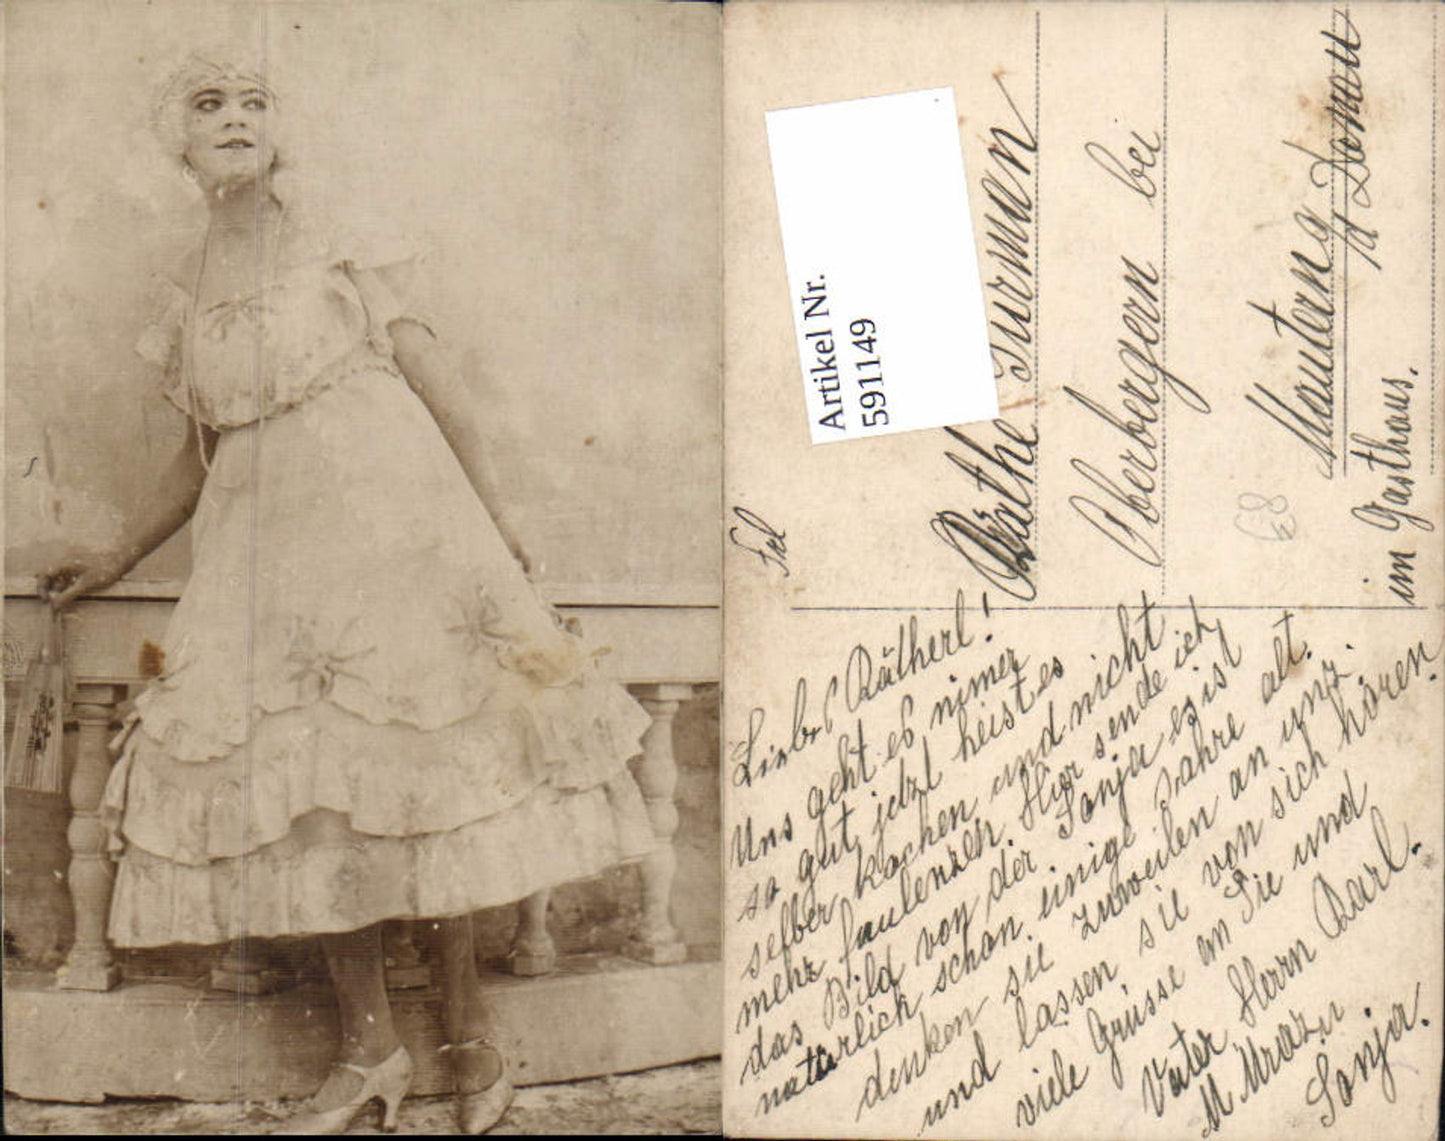 Artikel Nr.
591149
Frl
Käthe Surman
Oberbergern bei
Mautern
a/d Donau
im Gasthaus.
68
Liebes Kätherl!
Uns geht es nimer
so gut, jetzt heist es
selber kochen und nicht
mehr faulenzen. Hier sende ich
das Bild von der Sonja es ist
natürlich schon einige Jahre alt.
denken sie zuweilen an unz.
und lassen sie von sich hören.
viele Grüsse an Sie und
Vater Herrn Karl.
M
Sonja.